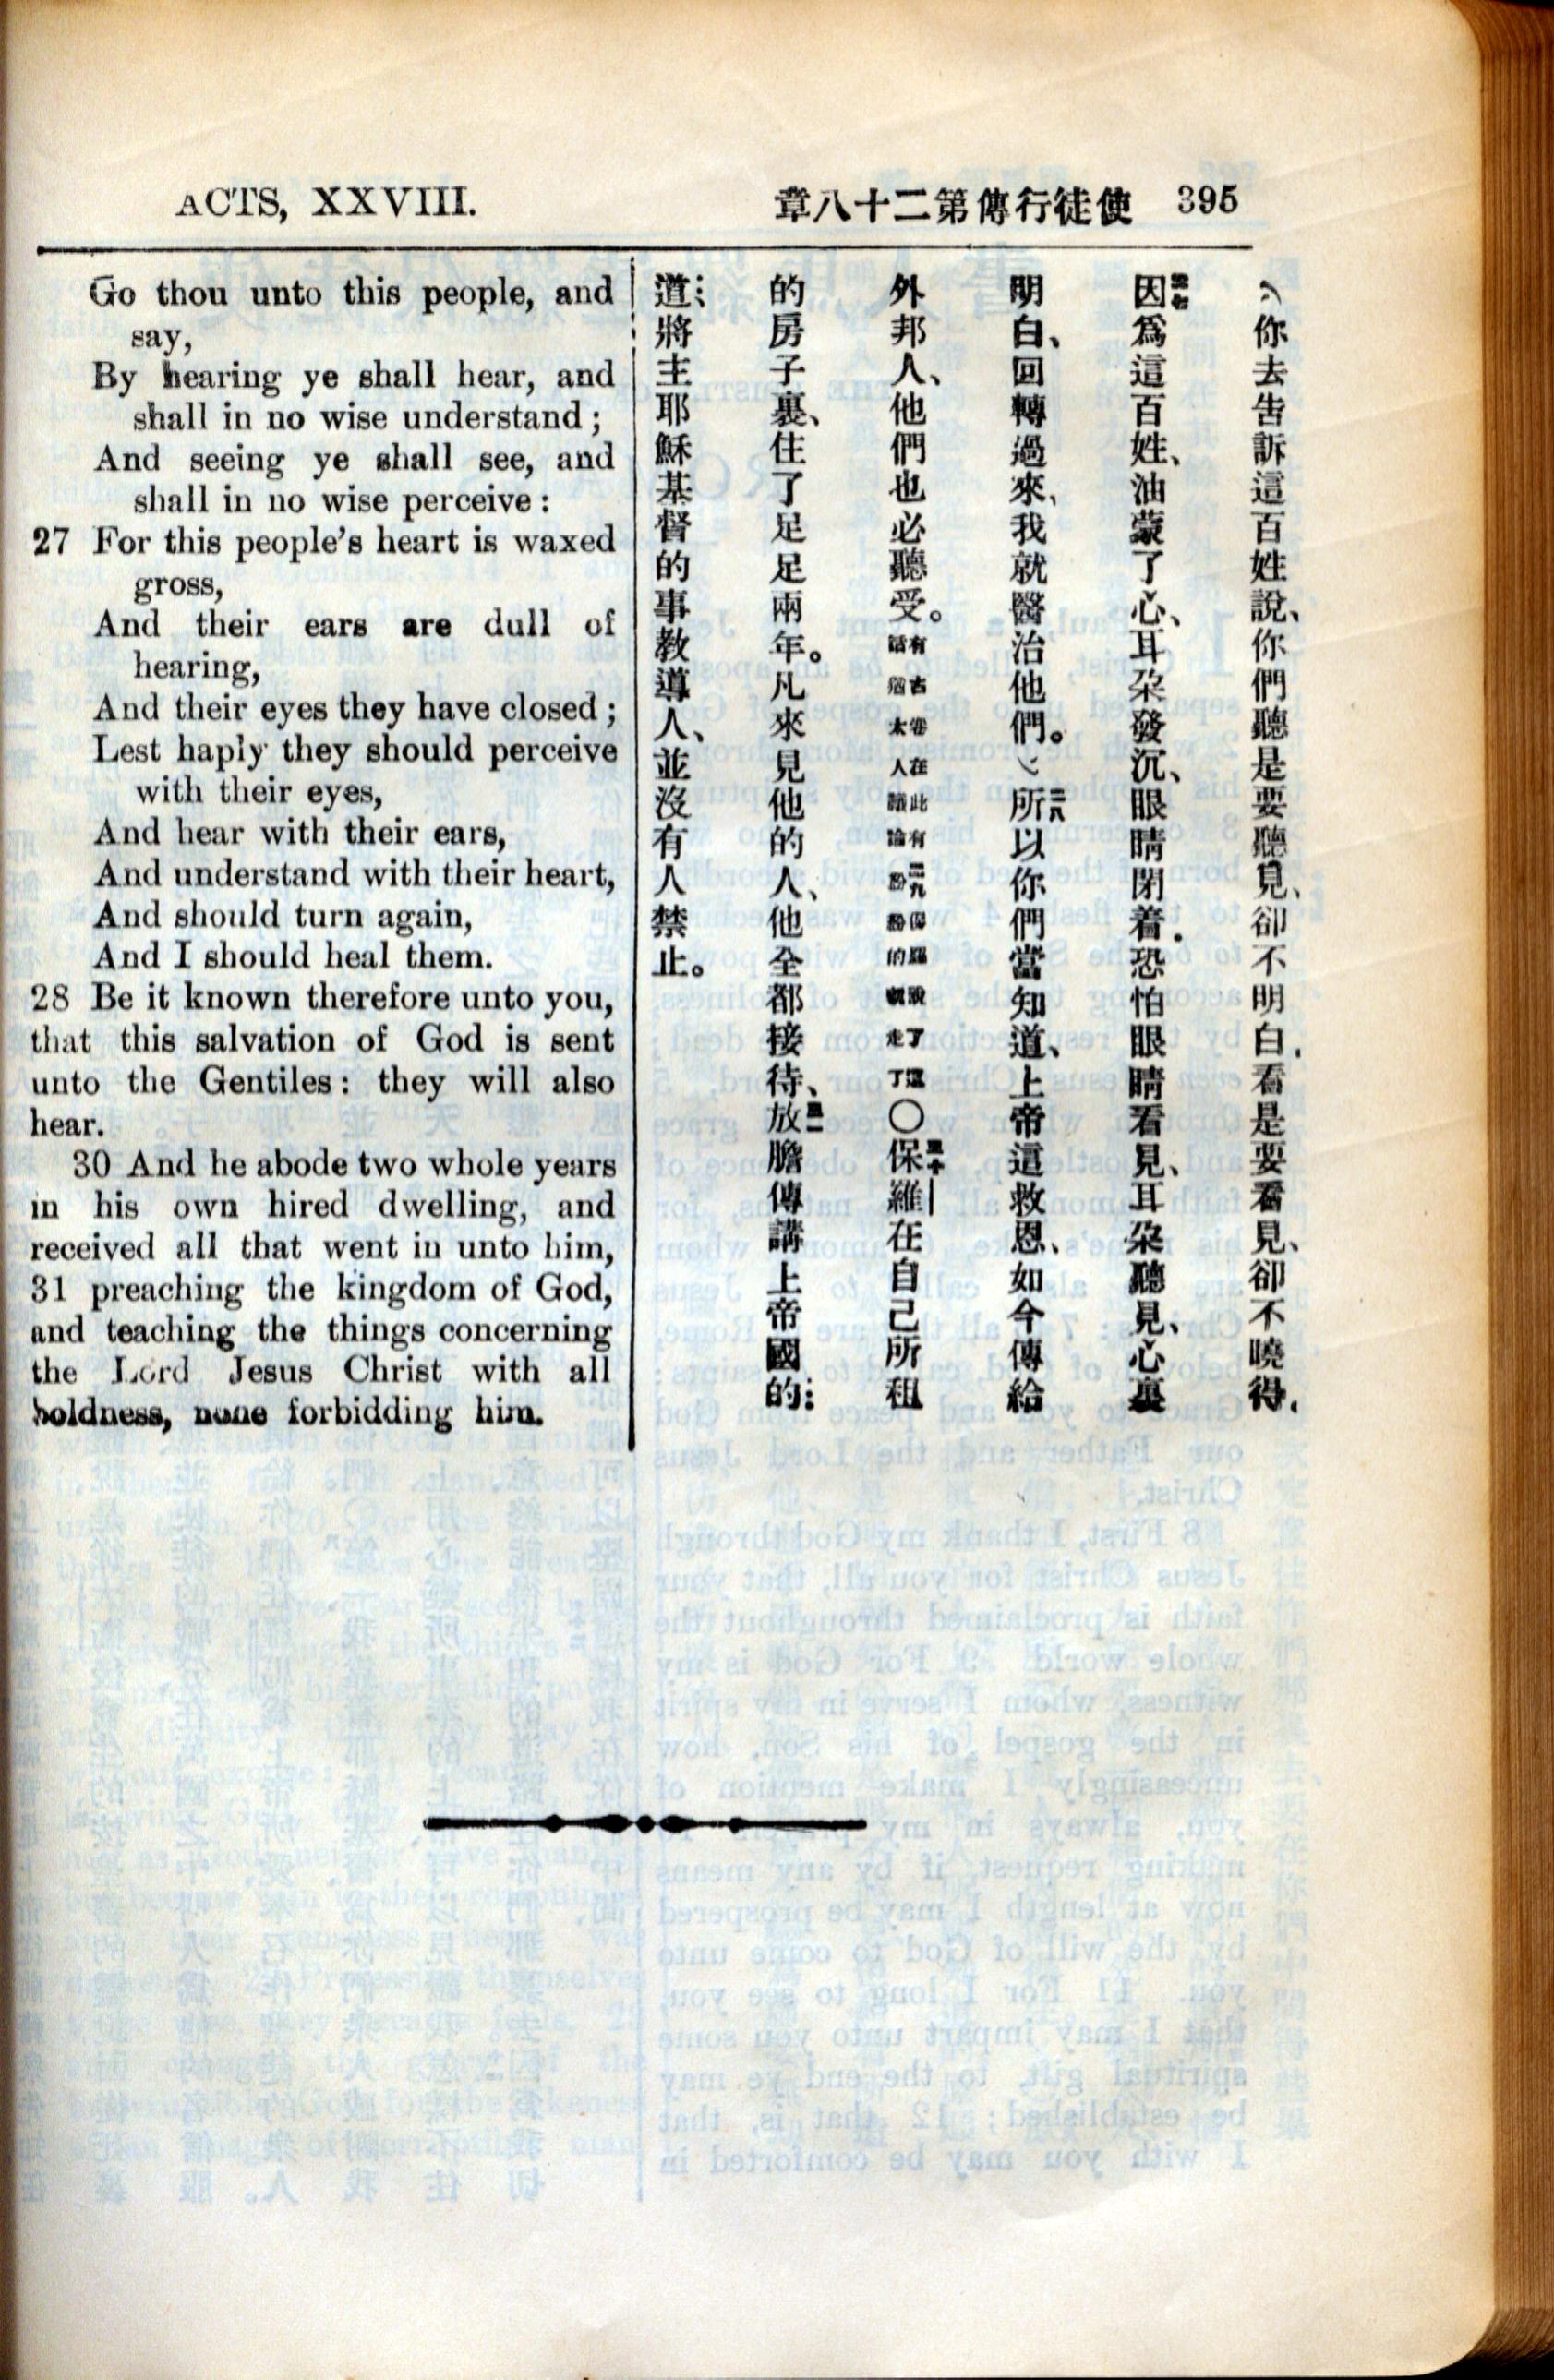 ACTS, XXVIII.
章八十二第傳行徒使 395
Go thou unto this people, and
say,
By hearing ye shall hear, and
shall in no wise understand;
And seeing ye shall see, and
shall in no wise perceive:
27 For this people's heart is waxed
gross,
And their ears are dull of
hearing,
And their eyes they have closed;
Lest haply they should perceive
with their eyes,
And hear with their ears,
And understand with their heart,
And should turn again,
And I should heal them.
28 Be it known therefore unto you,
that this salvation of God is sent
unto the Gentiles: they will also
hear.
30 And he abode two whole years
in his own hired dwelling, and
received all that went in unto him,
31 preaching the kingdom of God,
and teaching the things concerning
the Lord Jesus Christ with all
boldness, none forbidding him.
你去告訴這百姓說、你們聽是要聽見、卻不明白．看是要看見、卻不曉得．
因為這百姓、油蒙了心、耳朶發沉、眼睛閉着．恐怕眼睛看見、耳朶聽見、心裏
明白、回轉過來、我就醫治他們。所以你們當知道、上帝這救恩、如今傳給
外邦人、他們也必聽受。有古卷在此有二九保羅說了這話猶太人議論紛紛的就走了〇保羅在自己所租
的房子裏、住了足足兩年。凡來見他的人、他全都接待、放膽傳講上帝國的
道、將主耶穌基督的事教導人、並沒有人禁止。